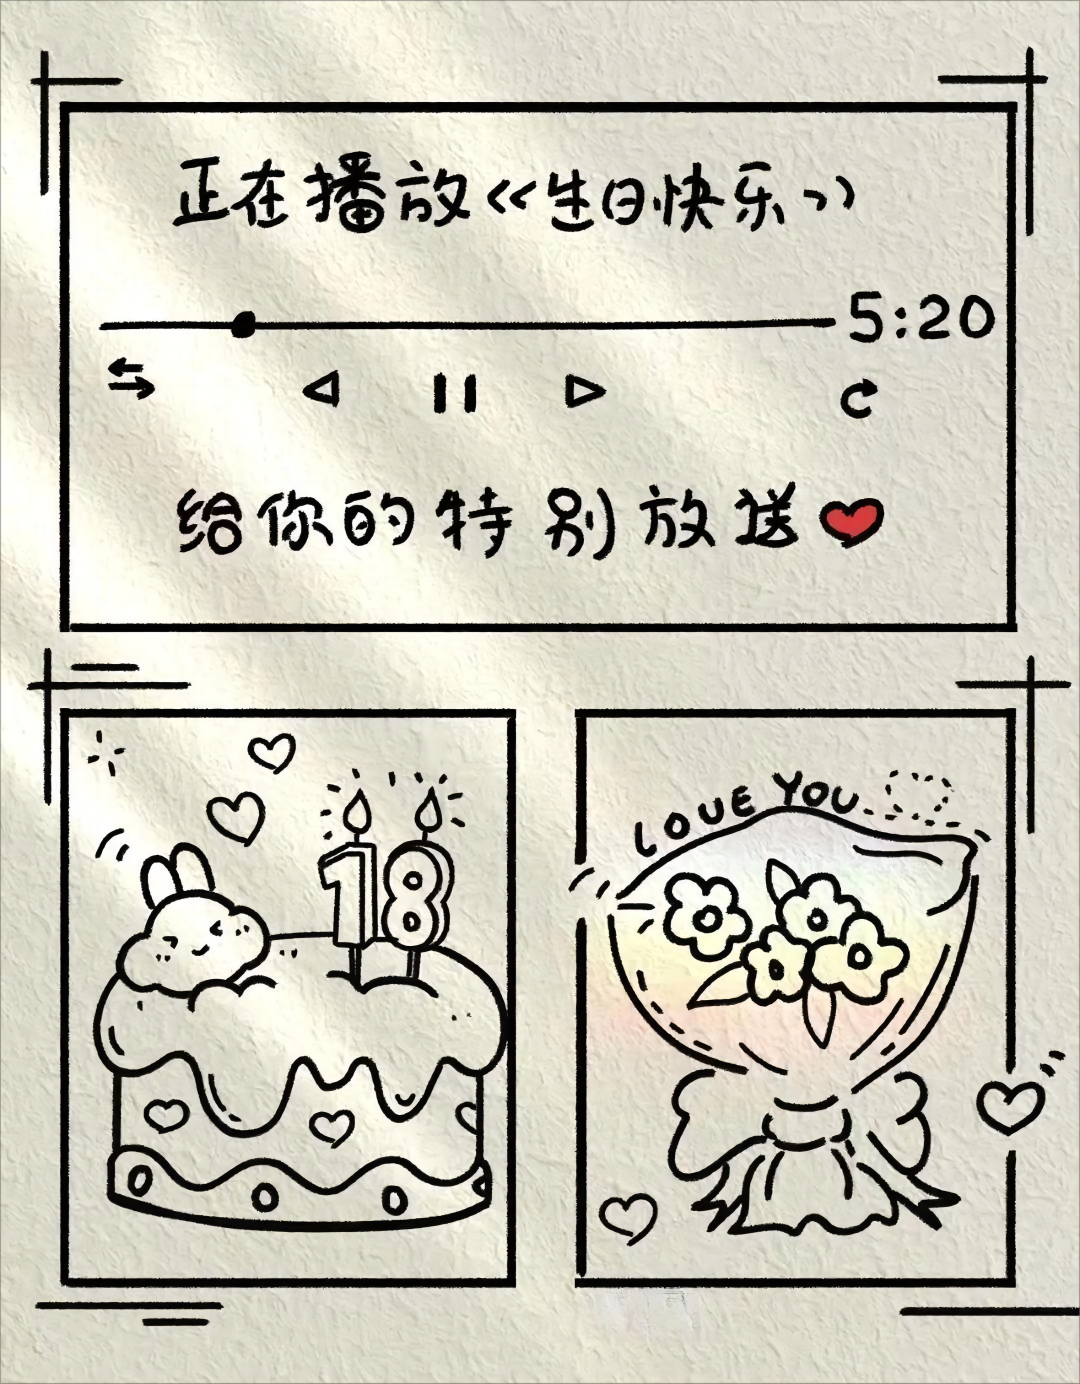 正在播放《生日快乐》
5:20
给你的特别放送
18
LOVE YOU